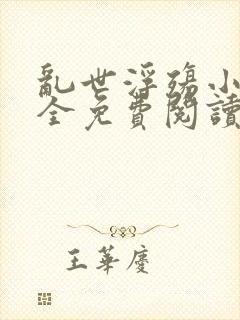 亂世浮殤小
全免費閱讀
王華慶